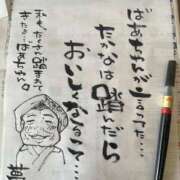 ばあちゃんが言ってた…
たかなは踏んだら
おいしくなるって…
私も、たくさん踏まれて
きたよ…ばあちゃん。